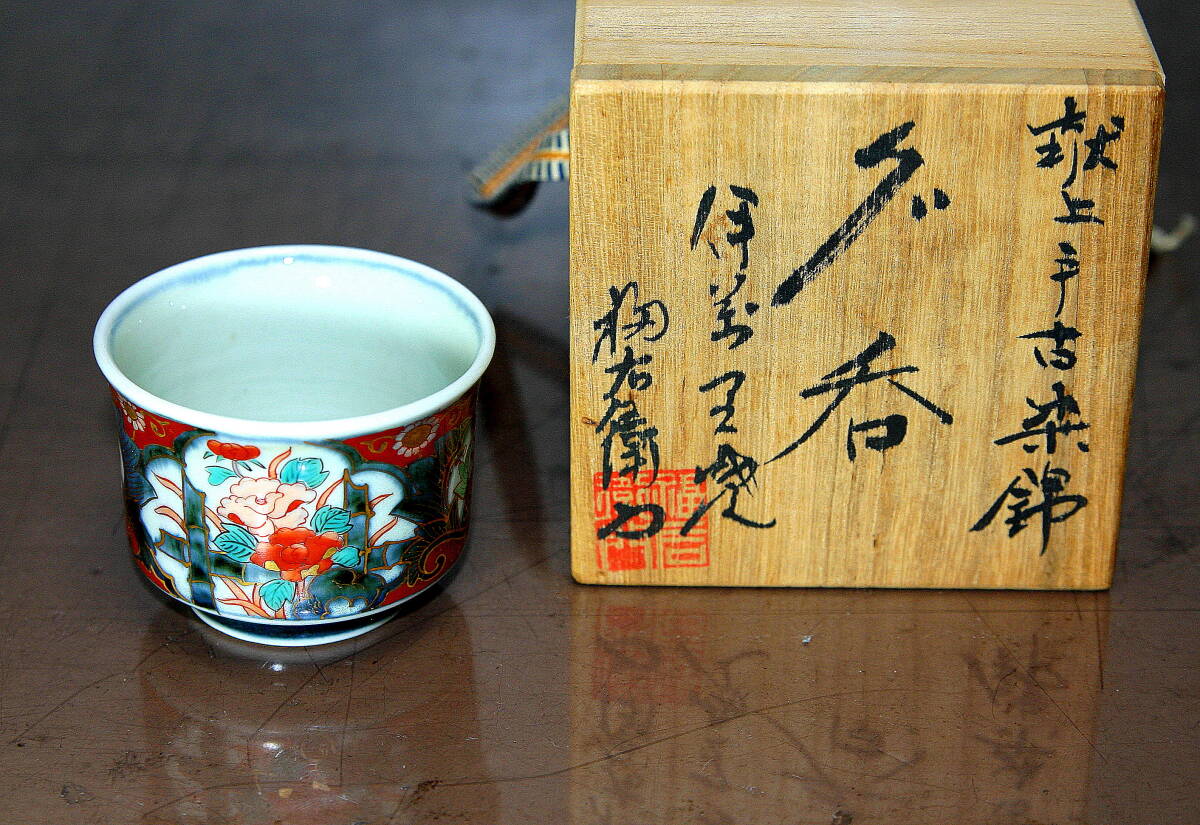 献上手古染錦
ぐ呑
伊万里焼
右衛門